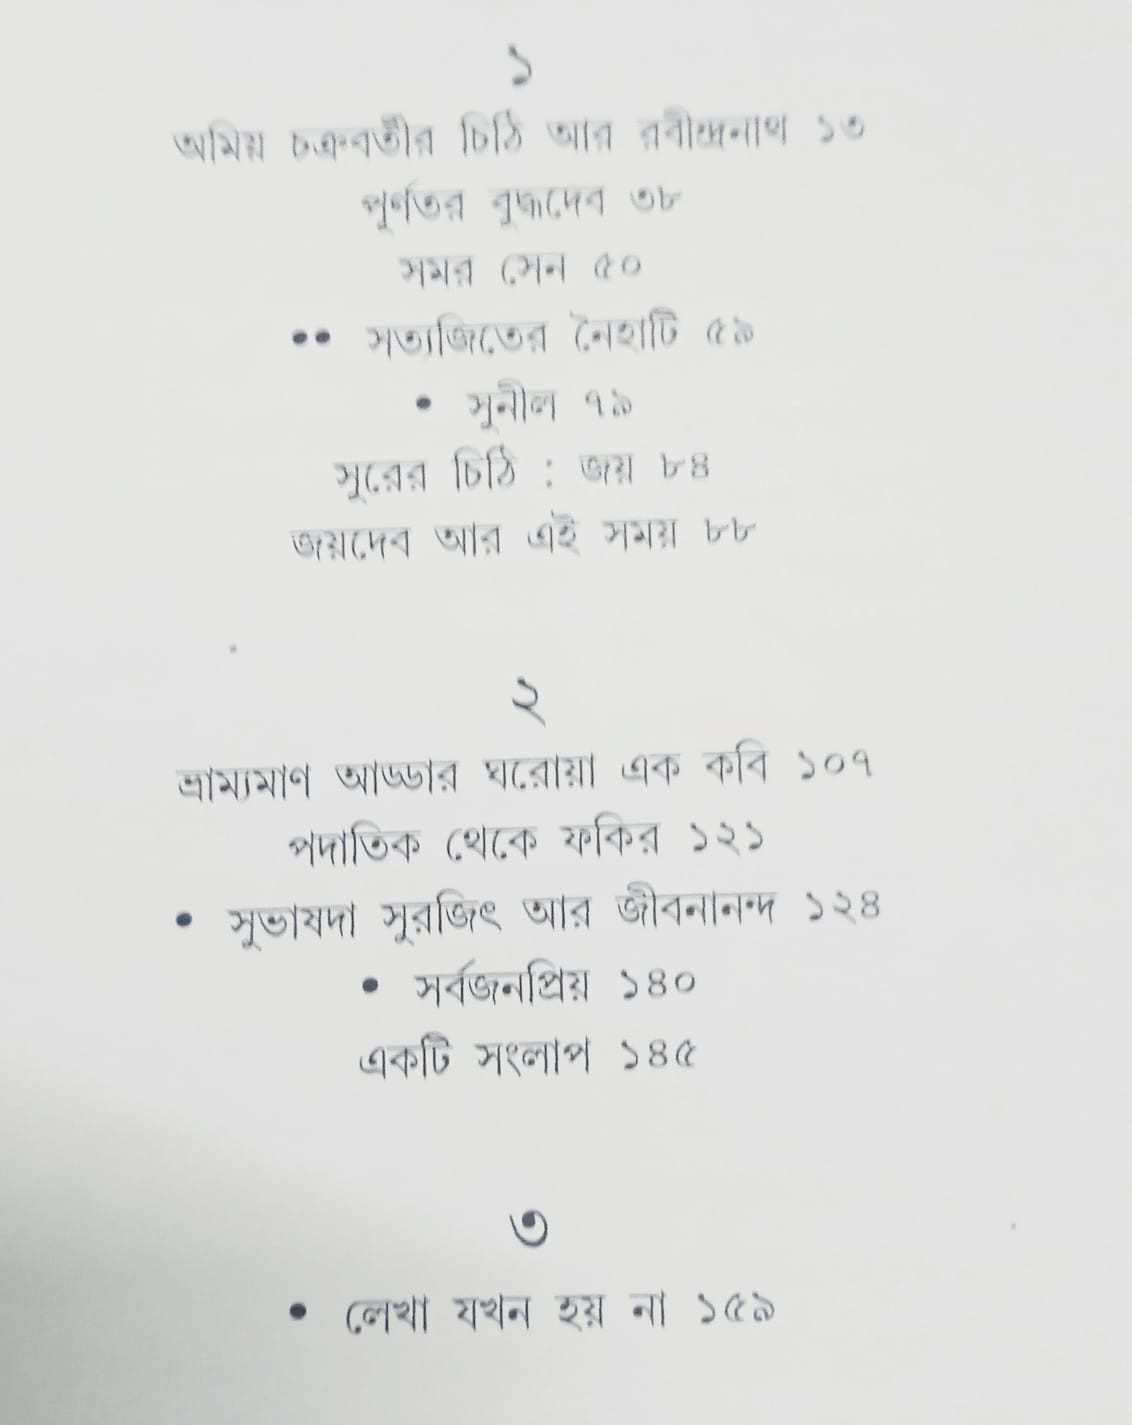 ১
অমিয় চক্রবর্তীর চিঠি আর রবীন্দ্রনাথ ১৩
পূর্ণতর বুদ্ধদেব ৩৮
সমর সেন ৫০
•• সত্যজিতের নৈহাটি ৫৯
• সুনীল ৭৯
সুরের চিঠি : জয় ৮৪
জয়দেব আর এই সময় ৮৮
২
ভ্রাম্যমাণ আড্ডার ঘরোয়া এক কবি ১০৭
পদাতিক থেকে ফকির ১২১
• সুভাষদা সুরজিৎ আর জীবনানন্দ ১২৪
• সর্বজনপ্রিয় ১৪০
একটি সংলাপ ১৪৫
৩
• লেখা যখন হয় না ১৫৯